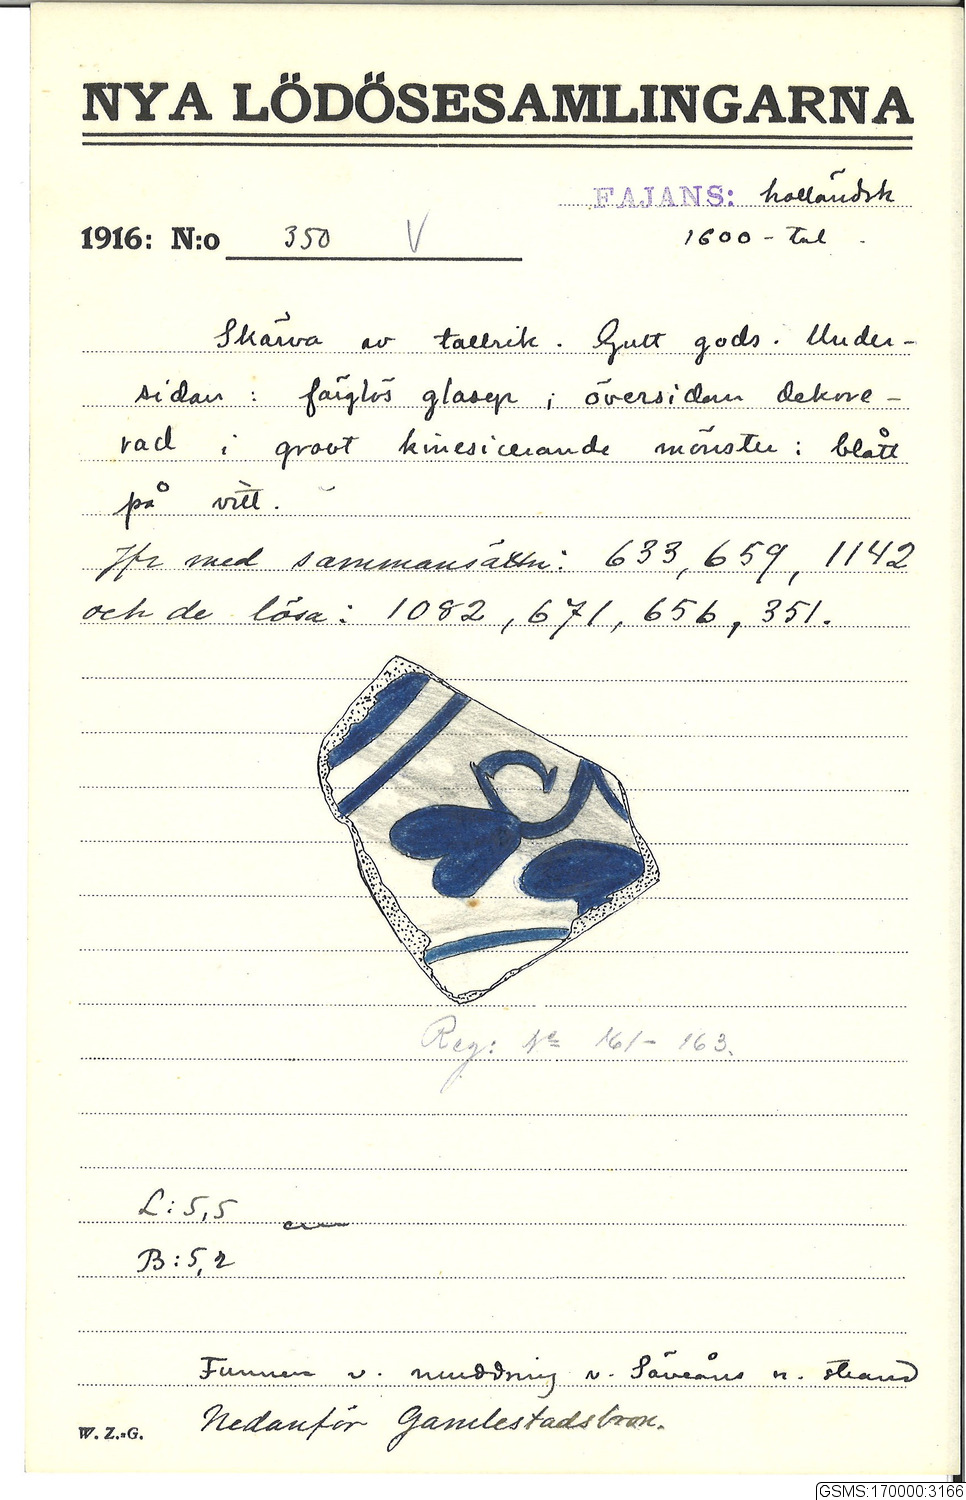 NYA LÖDÖSESAMLINGARNA
FAJANS: holländsk
1916: N:o 350 V
1600-tal
Skärva av tallrik. Gult gods. Under-
sidan: färglös glasyr; översidan dekore-
rad i grovt kinesicerande mönster: blått
på vitt.
Jfr med sammansättn: 633, 659, 1142
och de lösa: 1082, 671, 656, 351.
Reg: No 161-163.
L: 5,5
cm
B: 5,2
Funnen v. muddring v. Säveåns n. strand
Nedanför Gamlestadsbron.
W. Z.-G.
GSMS:170000:3166